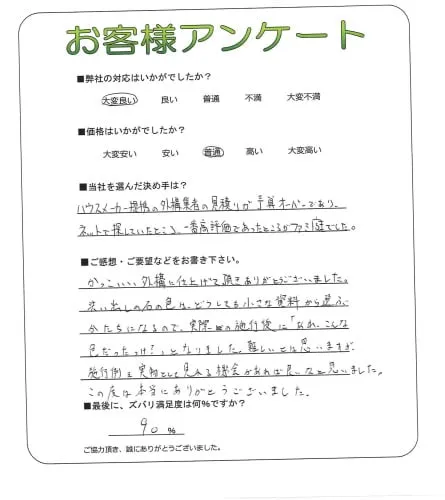 お客様アンケート
■弊社の対応はいかがでしたか？
大変良い 良い 普通 不満 大変不満
■価格はいかがでしたか？
大変安い 安い 普通 高い 大変高い
■当社を選んだ決め手は？
ハウスメーカー提携の外構業者の見積りが予算オーバーであり、
ネットで探していたところ、一番高評価であったところがファミ庭でした。
■ご感想・ご要望などをお書き下さい。
かっこいい外構に仕上げて頂きありがとうございました。
洗い出しの石の色は、どうしても小さな資料から選ぶ
かたちになるので、実際の施行後に「あれ、こんな
色だったっけ？」となりました。難しいとは思いますが
施行例を実物として見れる機会があれば良いなと思いました。
この度は本当にありがとうございました。
■最後に、ズバリ満足度は何%ですか？
90 %
ご協力頂き、誠にありがとうございました。